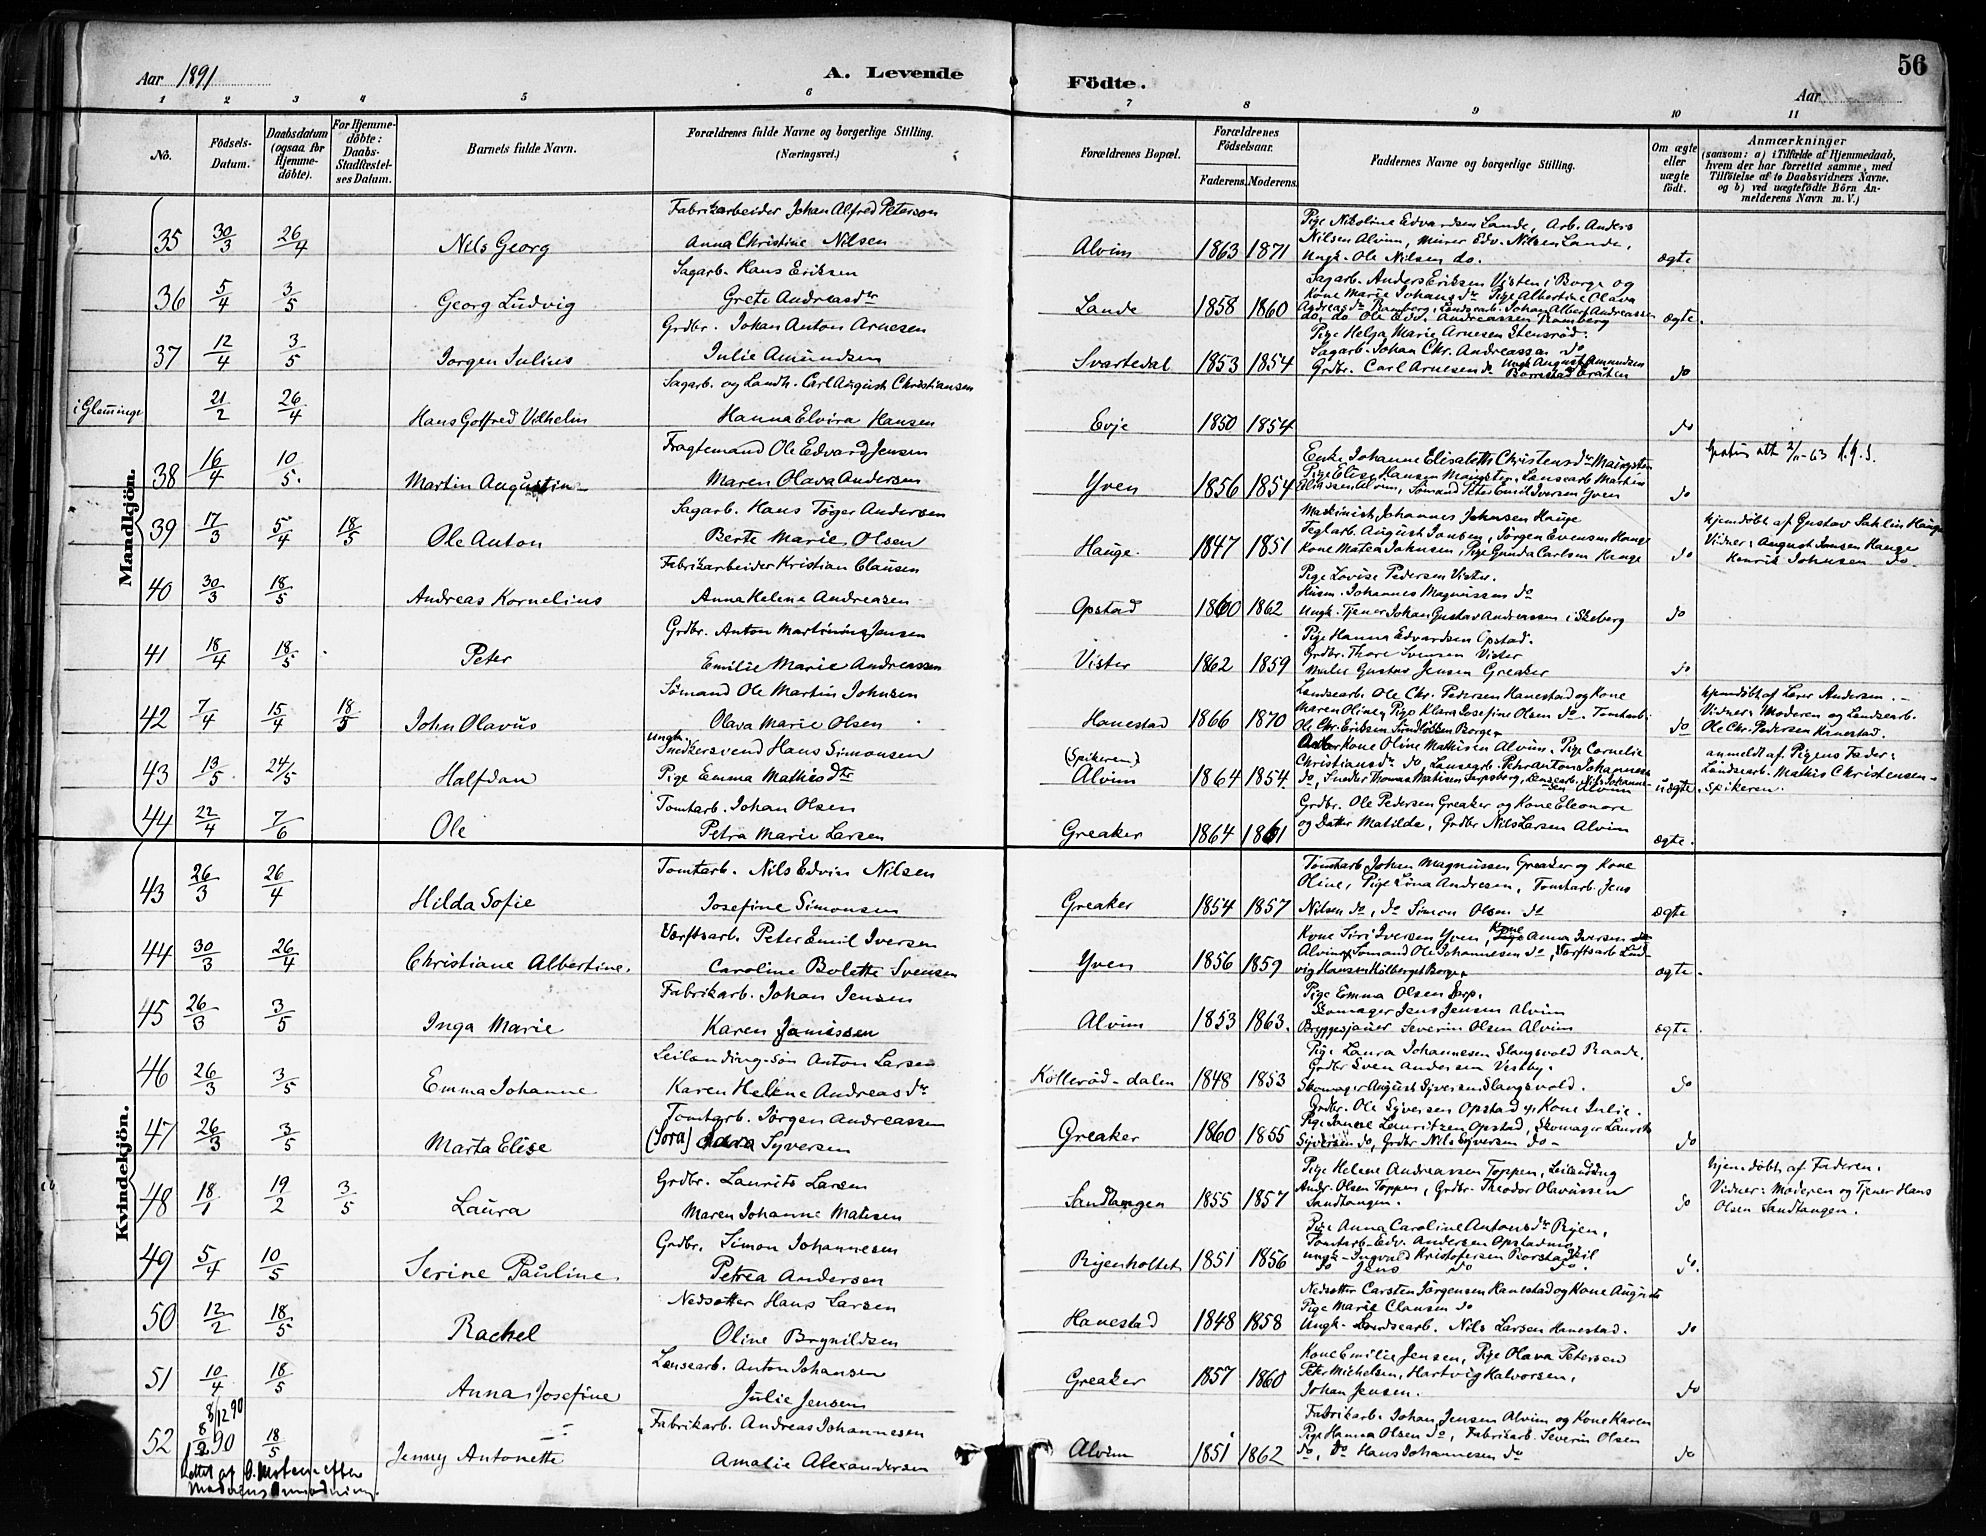 Aar 1891
A. Levende Födte.
56
Aar
1 2 3 4 5 6 7 8 9 10 11
No.
Födsels-Datum.
Daabsdatum (ogsaa for Hjemme-döbte).
For Hjemme-döbte: Daabs-Stadfestel-ses Datum.
Barnets fulde Navn.
Forældrenes fulde Navne og borgerlige Stilling. (Næringsvei.)
Forældrenes Bopæl.
Forældrenes Födselsaar.
Faderens. Moderens.
Faddernes Navne og borgerlige Stilling.
Om ægte eller uægte födt.
Anmærkninger
(saasom: a) i Tilfælde af Hjemmedaab, hvem der har forrettet samme, med Tilföielse af to Daabsvidners Navne. og b) ved uægtefödte Börn An-melderens Navn m. V.)
Mandkjön.
35 30/3 26/4 Nils Georg
Fabrikarbeider Johan Alfred Peterson
Anna Christine Nilsen
Alvim 1863 1871
Pige Nikoline Edvardsen Lande, Arb. Anders
Nilsen Alvim, Murer Edv. Nilsen Lande,
Ungk. Ole Nilsen do.
ægte
36 5/4 3/5 Georg Ludvig
Sagarb. Hans Eriksen
Grete Andreasdr
Lande 1858 1860
Sagarb. Anders Eriksen Visten i Borge og
Kone Marie Johansdr Pige Albertine Olava
Andreasdr Ramberg, Landsarb. Johan Albert Andreassen
do, do Ole Edv. Andreassen Ramberg
ægte.
37 12/4 3/5 Jorgen Julius
Grdbr. Johan Anton Arnesen
Julie Amundsen
Svartedal 1853 1854
Pige Helga Marie Arnesen Stensrød.
Sagarb. Johan Chr. Andreassen do
Grdbr. Carl Arnesen do Ungk August Amundsen
do
i Glemminge 21/2 26/4 Hans Gotfred Vilhelm
Sagarb. og Landh. Carl August Christiansen
Hanna Elvira Hansen
Evje 1850 1854
do
38 16/4 10/5. Martin Augustin
Fragtemand Ole Edvard Jensen
Maren Olava Andersen
Yven 1856 1854
Enke Johanne Elisabeth Christensdr Maugsten
Pige Elise Hansen Maugsten, Lansearb Martin
Eliassen Alvim, Sömand Peter Emil Iversen Yven
do
39 17/3 5/4 18/5 Ole Anton
Sagarb. Hans Töger Andersen
Berte Marie Olsen
Hauge. 1847 1851
Maskinist Johannes Johnsen Hauge
Teglarb. August Jansen, Jørgen Evensen Hauge
Kone Matea Johnsen, Pige Gunda Carlsen Hauge
do
hjemdøbt af Gustav Sahlin Hauge
Vidner: August Jonsen Hauge
Henrik Johnsen do
40 30/3 18/5 Andreas Kornelius
Fabrikarbeider Kristian Clausen
Anna Helene Andreasen
Opstad 1860 1862
Pige Lovise Pedersen Vister.
Husm. Johannes Magnussen do
Ungk. Tjener Johan Gustav Andreassen i Skeberg
do
41 18/4 18/5 Peter
Grdbr. Anton Martinius Jensen
Emilie Marie Andreassen
Vister 1862 1859
Pige Hanna Edvardsen Opstad.
Grdbr. Thore Svensen Vister
Maler Gustav Jensen Greaker
do
42 7/4 15/4 18/5 John Olavus
Sömand Ole Martin Johnsen
Olava Marie Olsen
Hanestad 1866 1870
Landsearb. Ole Chr. Pedersen Hanestad og Kone
Maren Oline, Pige Klara Josefine Olsen do. Tomtarb.
Ole Chr. Eriksen Sundløkken Borge.
do
hjemdøbt af Lærer Andersen.
Vidner: Moderen og Landsearb.
Ole Chr. Pedersen Hanestad.
43 13/5. 24/5 Halfdan
Ungk. Snedkersvend Hans Simonsen
Pige Emma Mathisdtr
(Spikeren)
Alvim 1864 1854.
Kone Oline Mathisen Alvim, Pige Cornelia
Christiansdr do, Lansearb. Pehr Anton Johannesen
do, Snedker Thomas Matisen Sarpsborg, Lansearb. Nils Johanne-
sen Alvim
uægte.
anmeldt af Pigens Fader:
Landsearb. Mathis Christensen -
Spikeren.
44 22/4 7/6 Ole
Tomtarb. Johan Olsen
Petra Marie Larsen
Greaker 1864 1861
Grdbr. Ole Pedersen Greaker og Kone Eleonore
og Datter Matilde, Grdbr Nils Larsen Alvim
ægte.
Kvindekjön.
43 26/3 26/4 Hilda Sofie
Tomtarb. Nils Edvin Nilsen
Josefine Simonsen
Greaker 1854 1857
Tomtarb Johan Magnussen Greaker og Kone
Oline, Pige Lina Andresen, Tomtarb. Jens
Nilsen do, do Simon Olsen do
ægte
44 30/3 26/4 Christiane Albertine.
Værftsarb. Peter Emil Iversen
Caroline Bolette Svensen
Yven 1856 1859
Kone Siri Iversen Yven, Kone Anna Iversen
Alvim, Sömand Ole Johannesen do, Værftsarb Lud-
vig Hansen Kölberget Borge.
ægte.
45 26/3 3/5 Inga Marie
Fabrikarb. Johan Jensen
Karen Janissen
Alvim 1853 1863.
Pige Emma Olsen Sarp.
Skomager Jens Jensen Alvim
Bryggesjauer Severin Olsen Alvim
ægte.
46 26/3 3/5 Emma Johanne
Leilending-søn Anton Larsen
Karen Helene Andreasdr
Kölleröd-dalen 1848 1853
Pige Laura Johannesen Slangsvold Raade.
Grdbr Sven Andersen Vestby.
Skomager August Syversen Slangsvold.
do
47 26/3 3/5 Marta Elise
Tomtarb. Jørgen Andreassen
(Tora) Syversen
Greaker 1860 1855
Grdbr. Ole Syversen Opstad og Kone Julie.
Lauritzen Opstad, Skomager Laurits
Syversen do, Grdbr Nils Syversen do
do
48 18/1 19/2 3/5 Laura
Grdbr. Laurits Larsen
Maren Johanne Matisen
Sandtangen 1855 1857
Pige Helene Andreassen Toppen, Leilending
Andr. Olsen Toppen, Grdbr. Theodor Olavussen
Sandtangen.
do
hjemdøbt af Faderen.
Vidner: Moderen og Tjener Hans
Olsen Sandtangen.
49 5/4 10/5 Serine Pauline.
Grdbr. Simon Johannesen
Petrea Andersen
Ryenholtet 1851 1856
Pige Anna Caroline Antonsdr Ryen,
Tomtarb. Edv. Andersen Opstad
Ungk. Ingvald Kristofersen Rorstad
do Jens do do.
do.
50 12/2 18/5 Rachel
Nedsetter Hans Larsen
Oline Brynildsen
Hanestad 1848 1858
Nedsetter Carsten Jörgensen Hanestad og Kone Auguste
Pige Marie Clausen do
Ungk. Landsearb. Nils Larsen Hanestad.
do
51 10/4 18/5 Anna Josefine
Lansearb. Anton Johansen
Julie Jensen
Greaker 1857 1860
Kone Emilie Jensen, Pige Olava Petersen
Peter Michelsen, Hartvig Halvorsen,
Johan Jensen.
do
8/12 90
52 8/12 90 18/5 Jenny Antonette
Fabrikarb. Andreas Johannesen
Amalie Alexandersen
Alvim 1851 1862
Fabrikarb. Johan Jensen Alvim og Kone Karen
Pige Hanna Olsen do, Fabrikarb. Severin Olsen
do, do Hans Johannesen do
do
Rettet af
Moderens Anmodning.